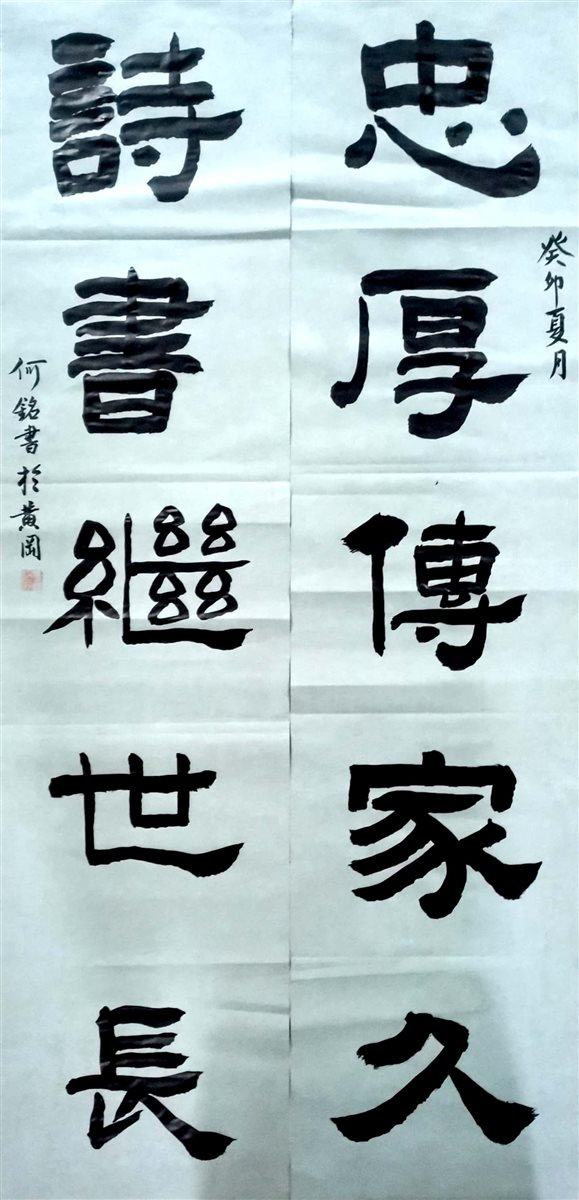 忠厚傳家久
癸卯夏月
詩書繼世長
何銘書於黄岡